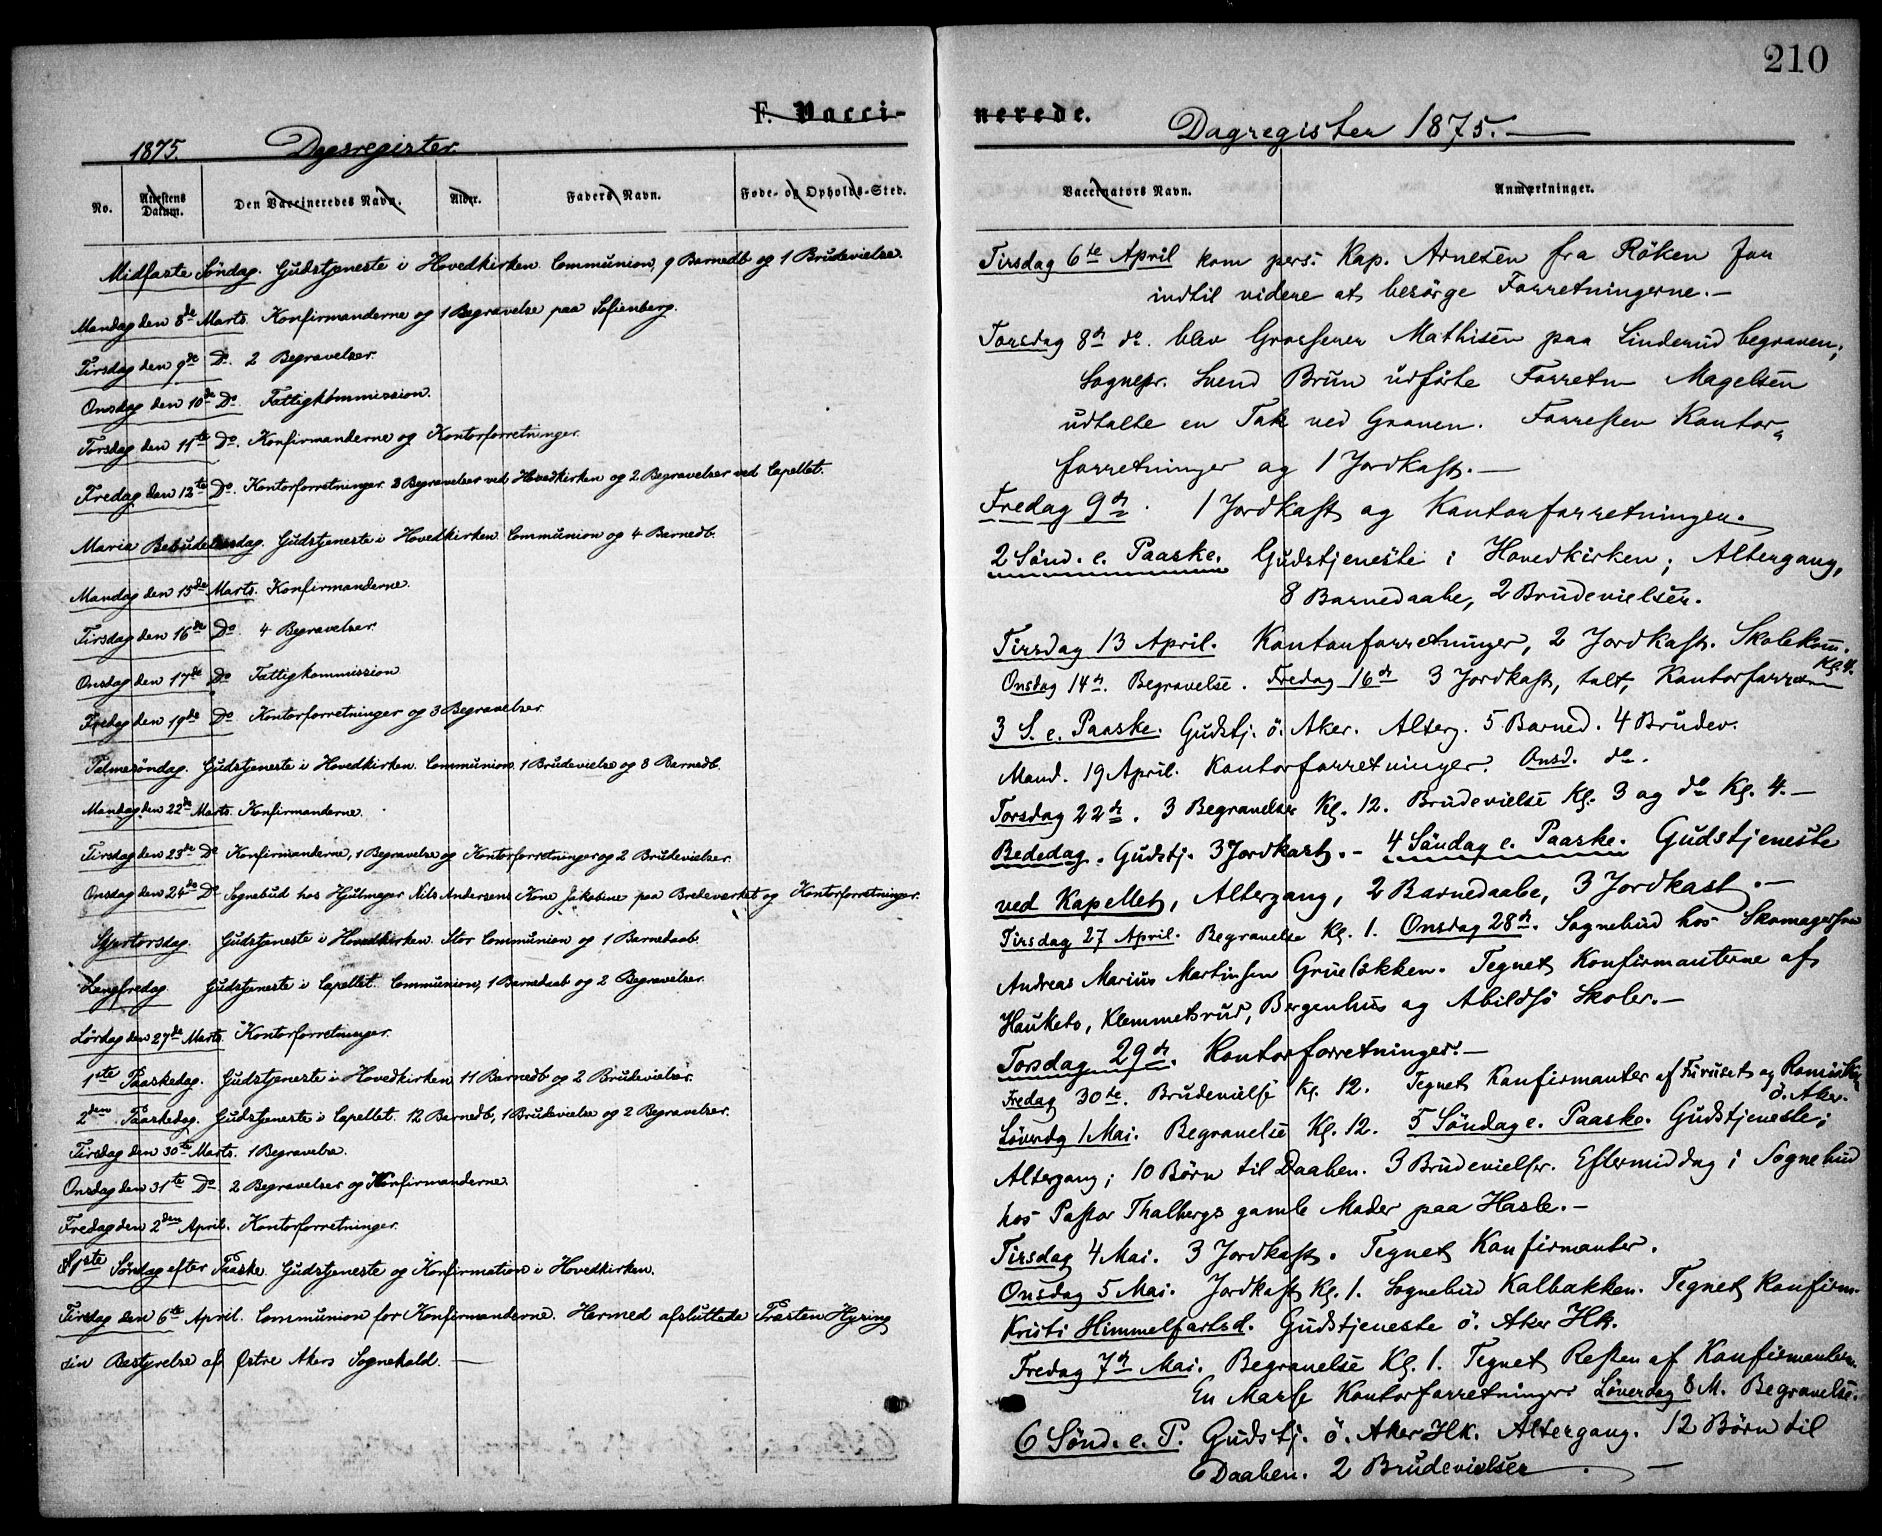 210
F. Vacci-
nerede.
1875. Dagsregister.
Dagregister 1875.
No.
Attestens Datum.
Den Vaccineredes Navn.
Alder.
Faders Navn.
Føde- og Opholds-Sted.
Vaccinators Navn.
Anmærkninger.
Midfaste Søndag. Gudstjeneste i Hovedkirken. Communion, 9 Barnedb og 1 Brudevielse.
Mandag den 8de Marts. Konfirmanderne og 1 Begravelse paa Sofienberg.
Tirsdag den 9de Do. 2 Begravelser.
Onsdag den 10de Do. Fattigkommission.
Torsdag den 11te Do. Konfirmanderne og Kontorforretninger.
Fredag den 12te Do. Kontorforretninger. 3 Begravelser ved Hovedkirken og 2 Begravelser ved Capellet.
Maria Bebudelsesdag. Gudstjeneste i Hovedkirken. Communion og 4 Barnedb.
Mandag den 15de Marts. Konfirmanderne.
Tirsdag den 16de Do 4 Begravelser.
Onsdag den 17de Do Fattigkommission
Fredag den 19de Do Kontorforretninger og 3 Begravelser.
Palmesøndag. Gudstjeneste i Hovedkirken. Communion. 1 Brudevielse og 8 Barnedb.
Mandag den 22de Marts. Konfirmanderne.
Tirsdag den 23de Do Konfirmanderne, 1 Begravelse og Kontorforretninger og 2 Brudevielser.
Onsdag den 24de Do Sognebud hos Hjulmager Nils Andersens Kone Jakobine paa Bredeverket og Kontorforretninger.
Skjertorsdag. Gudstjeneste i Hovedkirken. Stor Communion og 1 Barnedaab.
Langfredag. Gudstjeneste i Capellet. Communion, 1 Barnedaab og 2 Begravelser.
Lørdag den 27de Marts. Kontorforretninger.
1ste Paaskedag. Gudstjeneste i Hovedkirken 11 Barnedb og 2 Brudevielser.
2den Paaskedag. Gudstjeneste i Capellet. 12 Barnedb, 1 Brudevielse og 2 Begravelser.
Tirsdag den 30te Marts. 1 Begravelse.
Onsdag den 31te Do 2 Begravelser og Konfirmanderne.
Fredag den 2den April. Kontorforretninger.
1ste Søndag efter Paaske. Gudstjeneste og Konfirmation i Hovedkirken.
Tirsdag den 6te April. Communion for Konfirmanderne. Hermed afsluttede Præsten Hysing
sin Bestyrelse af Østre Akers Sognekald.
Tirsdag 6te April kom pers. Kap. Arnesen fra Röken for
indtil videre at besörge Forretningerne.
Torsdag 8de do. blev Grosserer Mathisen paa Linderud begraven;
Sognepr. Svend Brun udförte Forretn Magelsen
udtalte en Tak ved Graven. Forresten Kontor-
forretninger og 1 Jordkast.
Fredag 9de. 1 Jordkast og Kontorforretninger.
2 Sönd. e. Paaske. Gudstjeneste i Hovedkirken; Altergang,
8 Barnedaabe, 2 Brudevielser.
Tirsdag 13 April. Kontorforretninger, 2 Jordkast. Skolekom.
Kl. 4.
Onsdag 14de. Begravelse. Fredag 16de 3 Jordkast, talt, Kontorforr
3 S. e. Paaske. Gudstj. ö. Aker. Alterg. 5 Barned. 4 Brudev.
Mand. 19 April. Kontorforretninger. Onsd. do.
Torsdag 22de. 3 Begravelser Kl. 12. Brudevielse Kl. 3 og do Kl. 4.
Bededag. Gudstj. 3 Jordkast. 4 Söndag e. Paaske. Gudstjeneste
ved Kapellet, Altergang, 2 Barnedaabe, 3 Jordkast.
Tirsdag 27 April. Begravelse Kl. 1. Onsdag 28de. Sognebud hos Skomagersön
Andreas Marius Martinsen Gruebakken. Tegnet Konfirmanterne af
Hauketo, Klemmetsrud, Bergenhus og Abildsö Skoler.
Torsdag 29de. Kontorforretninger.
Fredag 30te. Brudevielse Kl. 12. Tegnet Konfirmanter af Furuset og
ö. Aker.
Löverdg 1 Mai. Begravelse Kl. 12. 5 Söndag e. Paaske. Gudstjeneste;
Altergang; 10 Börn til Daaben. 3 Brudevielser. Eftermiddag i Sognebud
hos Pastor Thalbergs gamle Moder paa Hasle.
Tirsdag 4 Mai. 3 Jordkast. Tegnet Konfirmanter.
Onsdag 5 Mai. Jordkast Kl. 1. Sognebud Kalbakken. Tegnet Konfirm
Kristi Himmelfartsd. Gudstjeneste ö. Aker Hk.
Fredag 7de Mai. Begravelse Kl. 1. Tegnet Resten af Konfirmanterne.
En Masse Kontorforretninger Löverdag 8 M. Begravelse.
6 Sönd. e. P. Gudstj. ö. Aker Hk. Altergang. 12 Börn til
Daaben. 2 Brudevielser